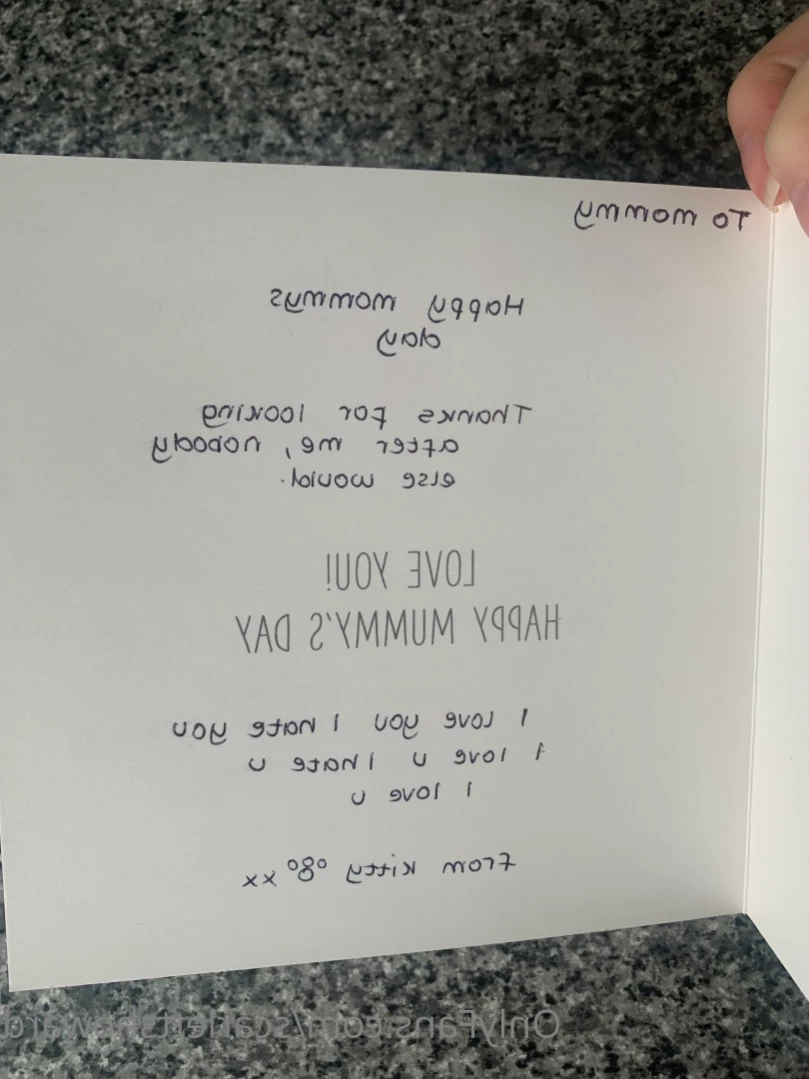 To mommy
Happy mommys
day
Thanks for looking
after me, nobody
else would.
LOVE YOU!
HAPPY MUMMY'S DAY
I love you I hate you
I love u I hate u
I love u
from kitty xx